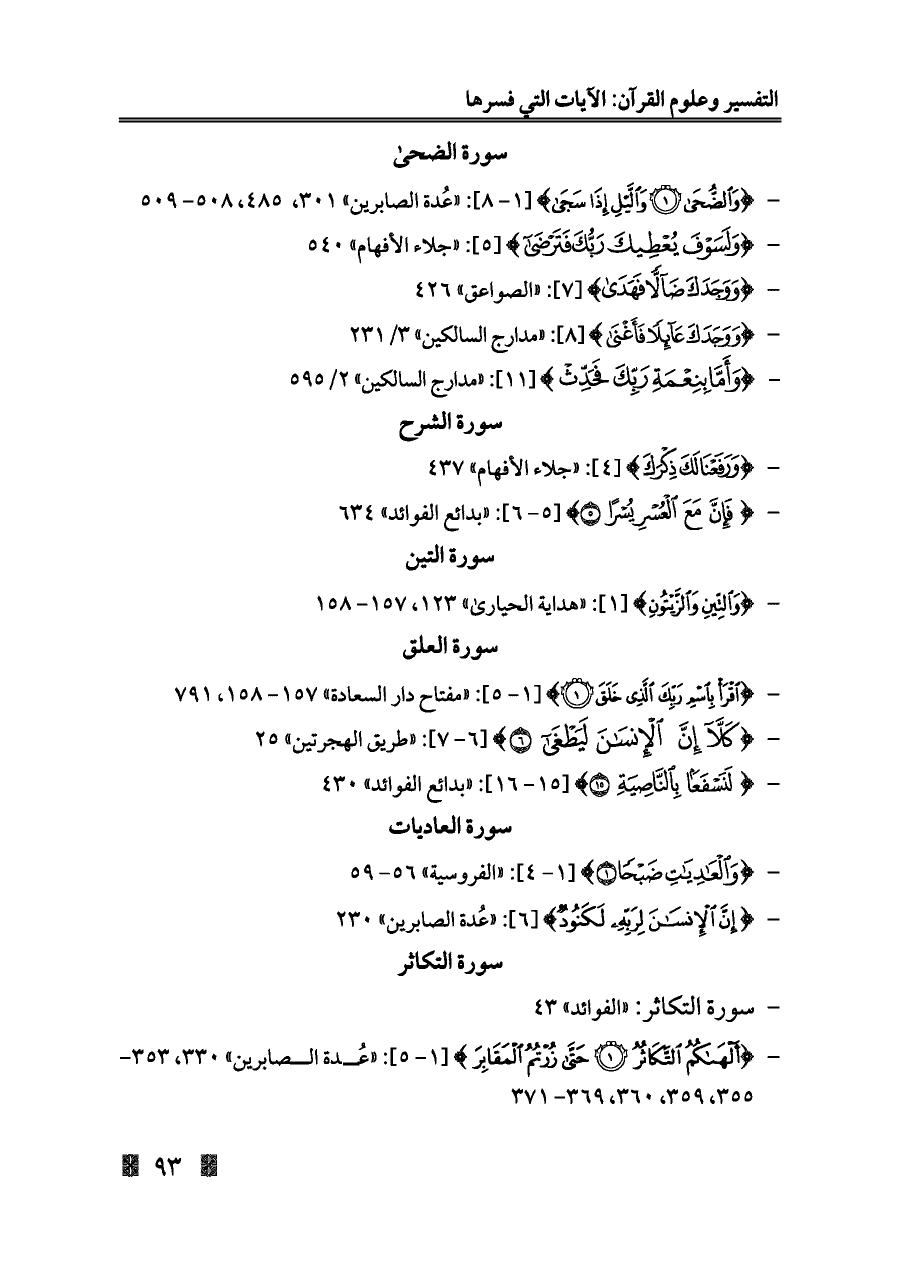 التفسير وعلوم القرآن: الآيات التي فسرها
سورة الضحىٰ
- ﴿وَٱلضُّحَىٰ ١ وَٱلَّيۡلِ إِذَا سَجَىٰ﴾ [١- ٨]: «عُدة الصابرين» ٣٠١، ٤٨٥، ٥٠٨- ٥٠٩
- ﴿وَلَسَوۡفَ يُعۡطِيكَ رَبُّكَ فَتَرۡضَىٰٓ﴾ [٥]: «جلاء الأفهام» ٥٤٠
- ﴿وَوَجَدَكَ ضَآلّٗا فَهَدَىٰ﴾ [٧]: «الصواعق» ٤٢٦
- ﴿وَوَجَدَكَ عَآئِلٗا فَأَغۡنَىٰ﴾ [٨]: «مدارج السالكين» ٣/ ٢٣١
- ﴿وَأَمَّا بِنِعۡمَةِ رَبِّكَ فَحَدِّثۡ﴾ [١١]: «مدارج السالكين» ٢/ ٥٩٥
سورة الشرح
- ﴿وَرَفَعۡنَا لَكَ ذِكۡرَكَ﴾ [٤]: «جلاء الأفهام» ٤٣٧
- ﴿فَإِنَّ مَعَ ٱلۡعُسۡرِ يُسۡرًا ٥﴾ [٥- ٦]: «بدائع الفوائد» ٦٣٤
سورة التين
- ﴿وَٱلتِّينِ وَٱلزَّيۡتُونِ﴾ [١]: «هداية الحيارىٰ» ١٢٣، ١٥٧- ١٥٨
سورة العلق
- ﴿ٱقۡرَأۡ بِٱسۡمِ رَبِّكَ ٱلَّذِي خَلَقَ ١﴾ [١- ٥]: «مفتاح دار السعادة» ١٥٧- ١٥٨، ٧٩١
- ﴿كَلَّآ إِنَّ ٱلۡإِنسَٰنَ لَيَطۡغَىٰٓ ٦﴾ [٦- ٧]: «طريق الهجرتين» ٢٥
- ﴿لَنَسۡفَعَۢا بِٱلنَّاصِيَةِ ١٥﴾ [١٥- ١٦]: «بدائع الفوائد» ٤٣٠
سورة العاديات
- ﴿وَٱلۡعَٰدِيَٰتِ ضَبۡحٗا ١﴾ [١- ٤]: «الفروسية» ٥٦- ٥٩
- ﴿إِنَّ ٱلۡإِنسَٰنَ لِرَبِّهِۦ لَكَنُودٞ﴾ [٦]: «عُدة الصابرين» ٢٣٠
سورة التكاثر
- سورة التكاثر: «الفوائد» ٤٣
- ﴿أَلۡهَىٰكُمُ ٱلتَّكَاثُرُ ١ حَتَّىٰ زُرۡتُمُ ٱلۡمَقَابِرَ﴾ [١- ٥]: «عُـــدة الـــصابرين» ٣٣٠، ٣٥٣-
٣٥٥، ٣٥٩، ٣٦٠، ٣٦٩- ٣٧١
٩٣